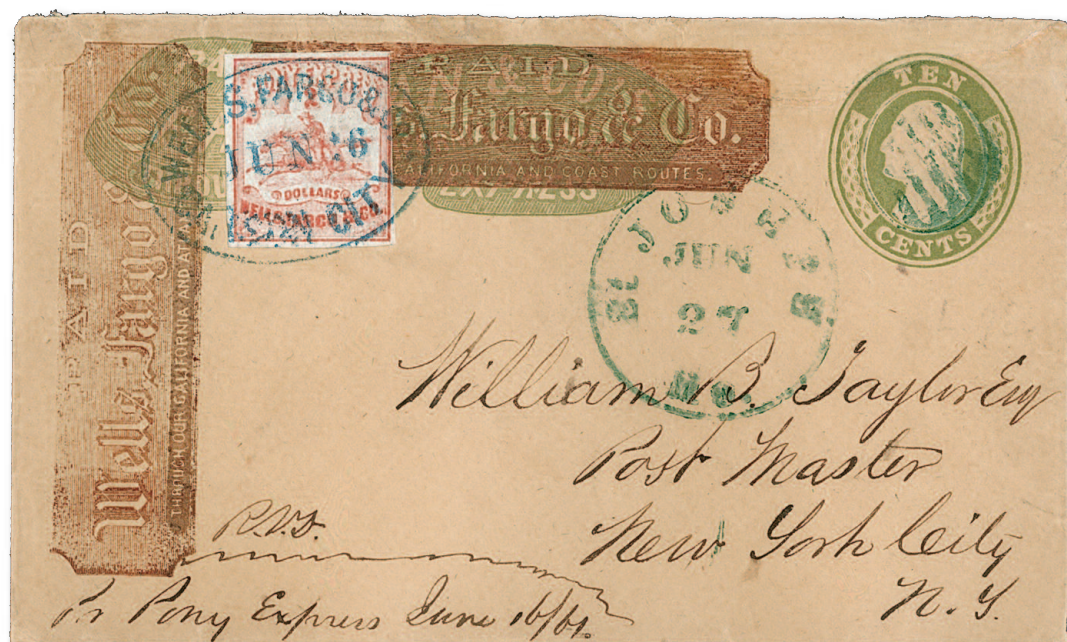 PAID
Wells, Fargo & Co.
THROUGH OUR CALIFORNIA AND
PAID
Fargo & Co.
CALIFORNIA AND COAST ROUTES.
EXPRESS
WELLS, FARGO & CO.
JUN 16
CITY
DOLLARS
WELLS FARGO & CO.
TEN
CENTS
ST JOSEPH
JUN
27
MO.
William B. Taylor Esq
Post Master
New York City
N.Y.
Pr Pony Express June 16/61.